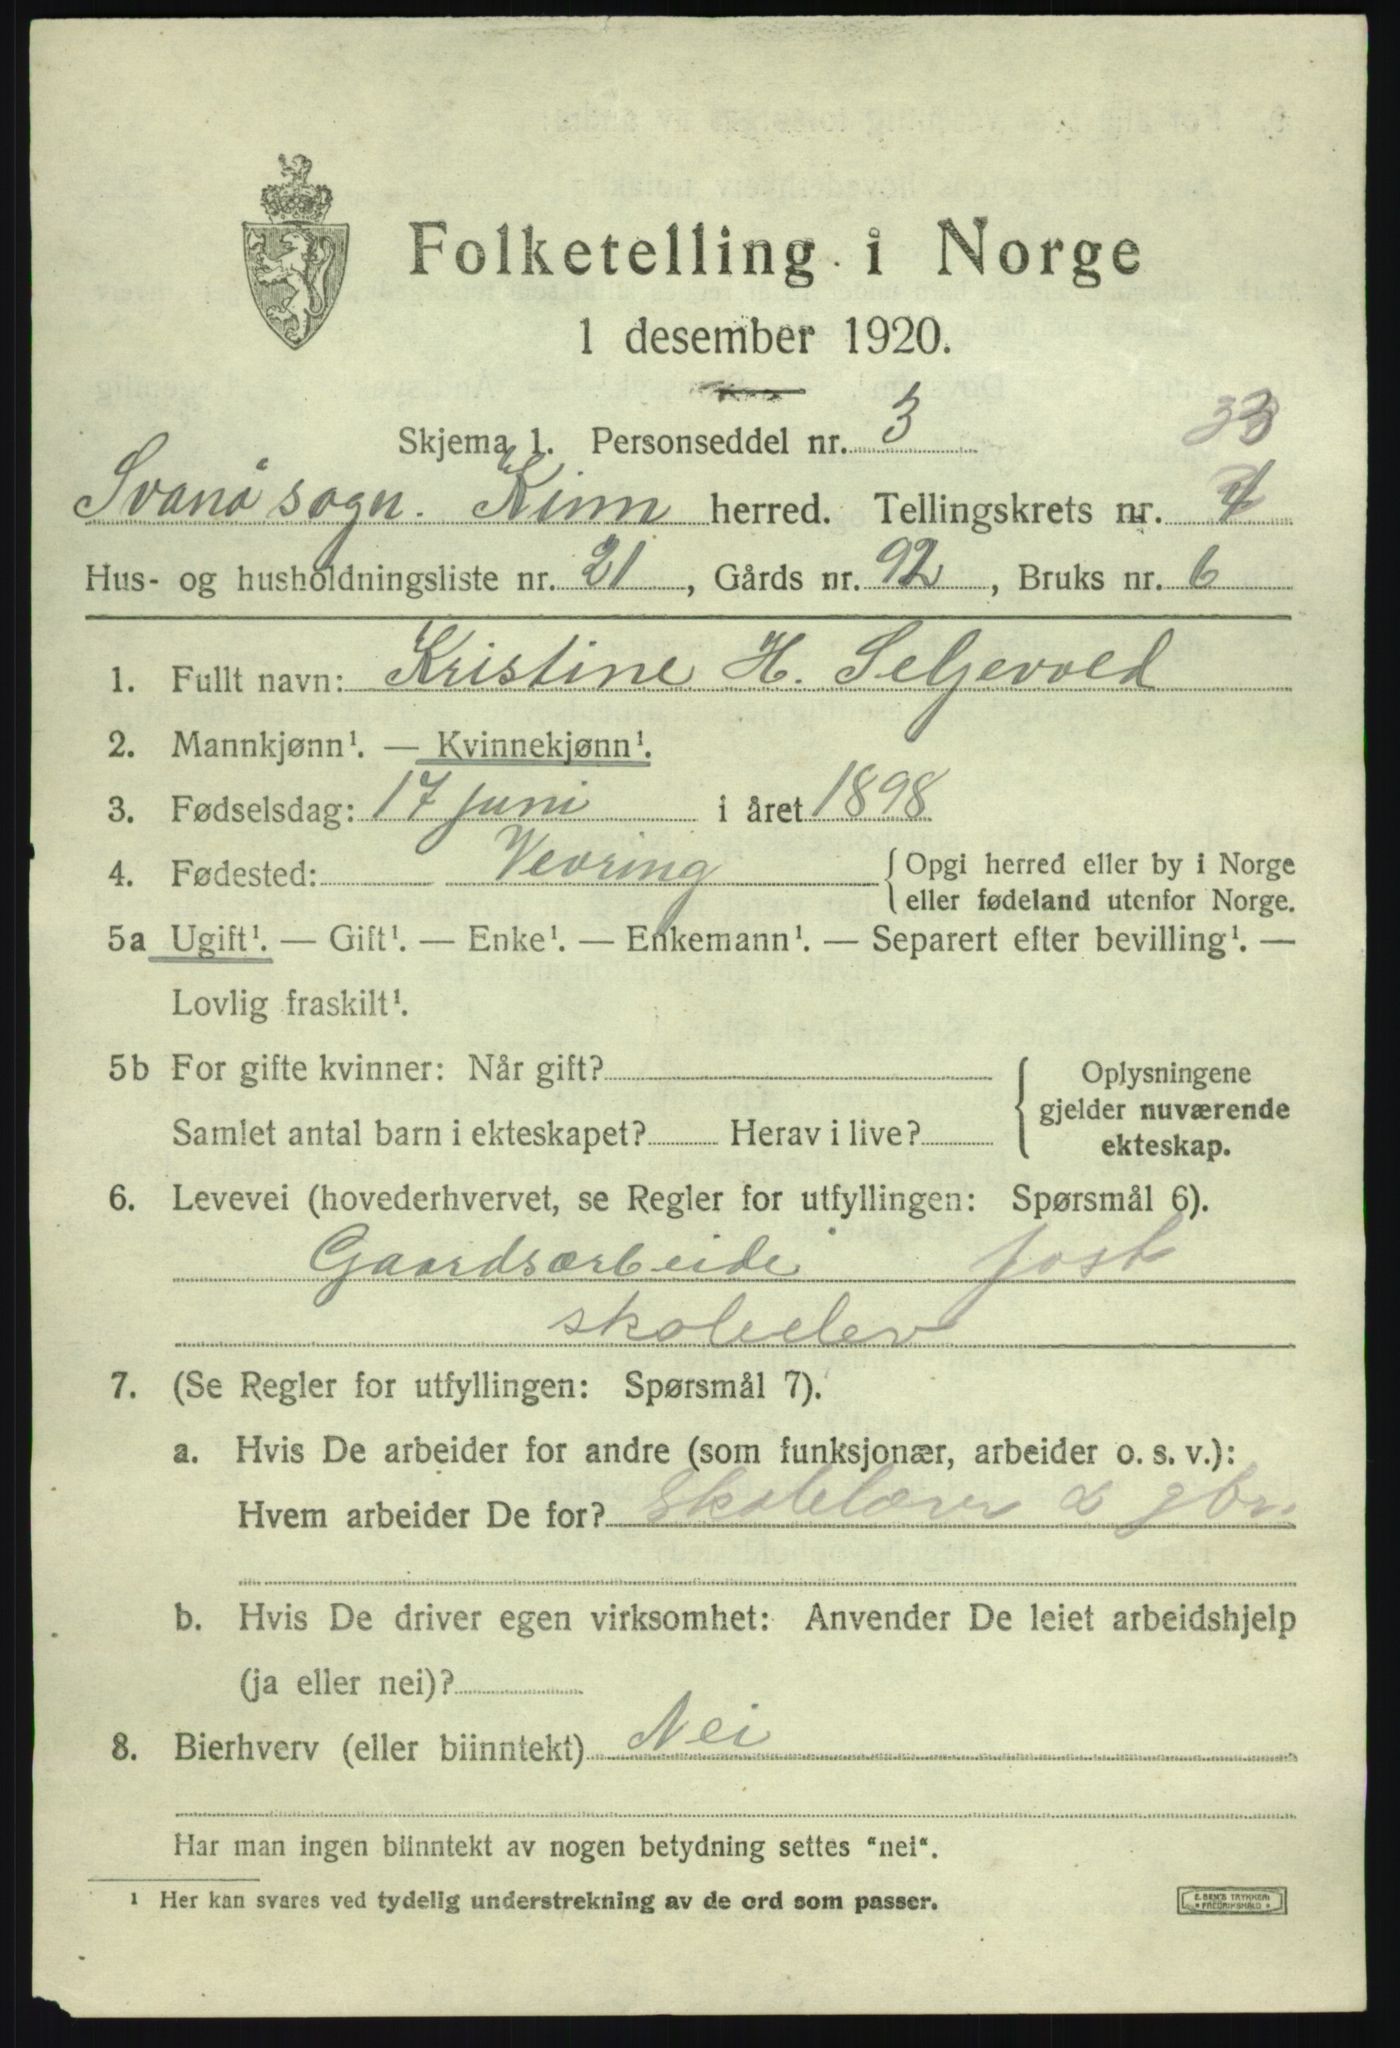 Folketelling i Norge
1 desember 1920.
Skjema 1. Personseddel nr. 3 33
Svanø sogn. Kinn herred. Tellingskrets nr. 4
Hus- og husholdningsliste nr. 21, Gårds nr. 92, Bruks nr. 6
1. Fullt navn: Kristine H. Seljevold
2. Mannkjønn¹. — Kvinnekjønn¹.
3. Fødselsdag: 17 juni i året 1898
4. Fødested: Vevring { Opgi herred eller by i Norge
eller fødeland utenfor Norge.
5a Ugift¹. — Gift¹. — Enke¹. — Enkemann¹. — Separert efter bevilling¹. —
Lovlig fraskilt¹.
5b For gifte kvinner: Når gift?
Samlet antal barn i ekteskapet? Herav i live?
{ Oplysningene
gjelder nuværende
ekteskap.
6. Levevei (hovederhvervet, se Regler for utfyllingen: Spørsmål 6).
Gaardsarbeide
skoleelev
7. (Se Regler for utfyllingen: Spørsmål 7).
a. Hvis De arbeider for andre (som funksjonær, arbeider o. s. v.):
Hvem arbeider De for? Skolelærer & gbr.
b. Hvis De driver egen virksomhet: Anvender De leiet arbeidshjelp
(ja eller nei)?
8. Bierhverv (eller biinntekt) Nei
Har man ingen biinntekt av nogen betydning settes "nei".
¹ Her kan svares ved tydelig understrekning av de ord som passer.
E. SEM'S TRYKKERI
FREDRIKSHALD